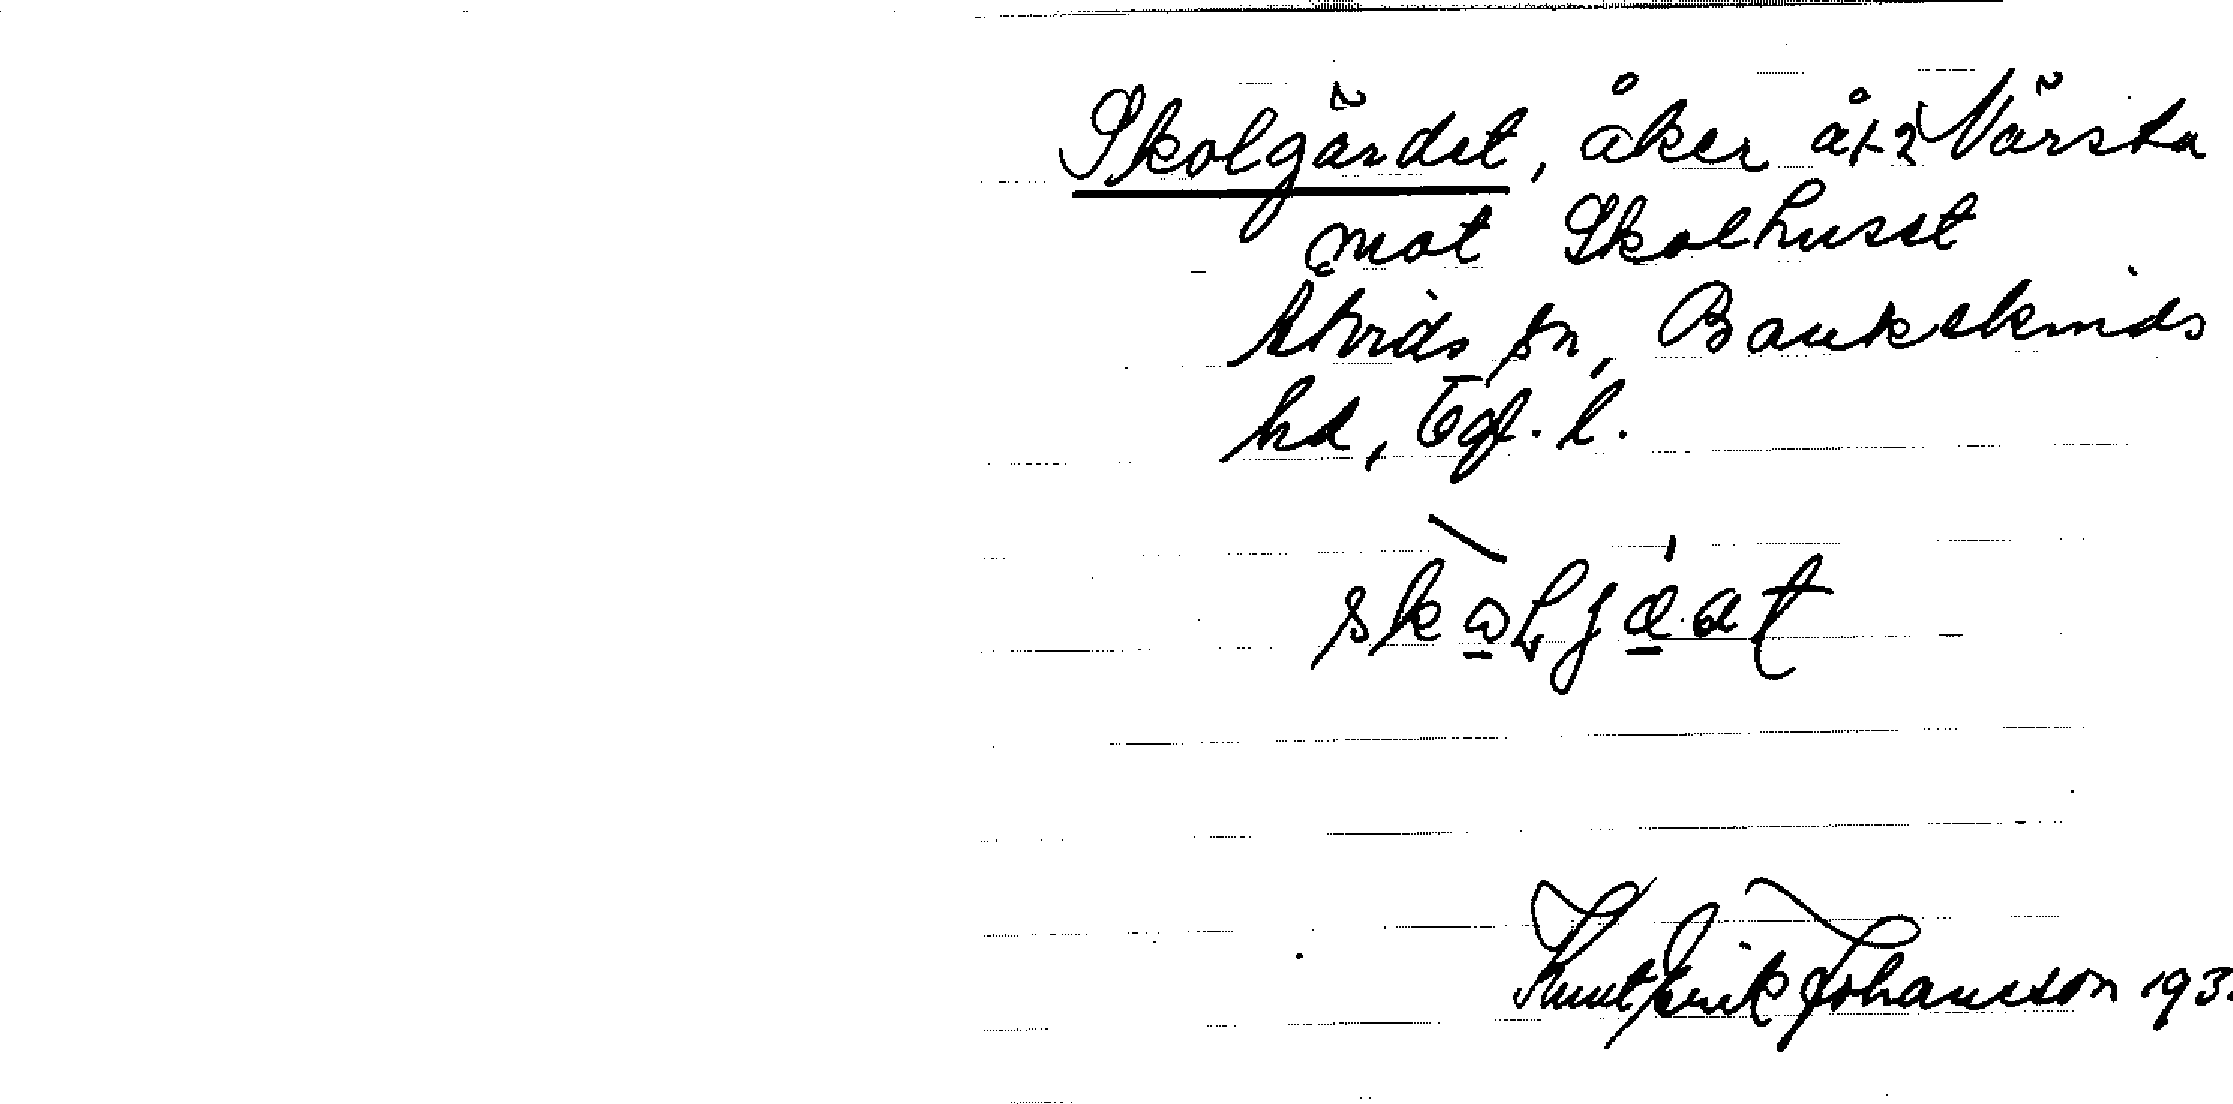 Skolgärdet, åker å Värsta
mot Skolhuset
Åtvids sn, Bankekinds
hd, Ögl. l.
Knut Erik Johansson 193